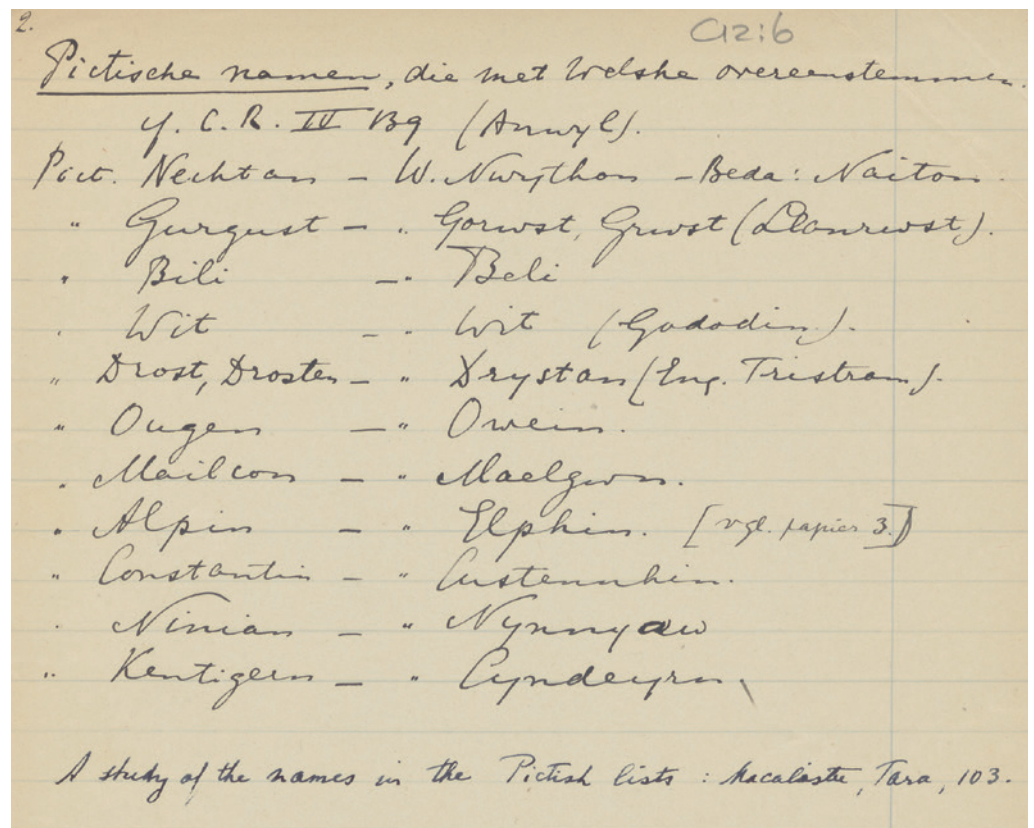 2.
C12:6
Pictische namen, die met Welshe overeenstemmen.
cf. C.R. IV 139 (Anwyl).
Pict. Nechtan – W. Nwython – Beda: Naiton.
" Gurgust – " Gorwst, Grwst (Llanrwst).
" Bili – " Beli
" Wit – " Wit (Gododin).
" Drost, Drosten – " Drystan (Eng. Tristram).
" Ougen – " Owein.
" Mailcon – " Maelgwn.
" Alpin – " Elphin. [vgl. papier 3.]
" Constantin – " Custennhin.
" Ninian – " Nynnyaw
" Kentigern – " Cyndeyrn.
A study of the names in the Pictish lists : Macalister, Tara, 103.